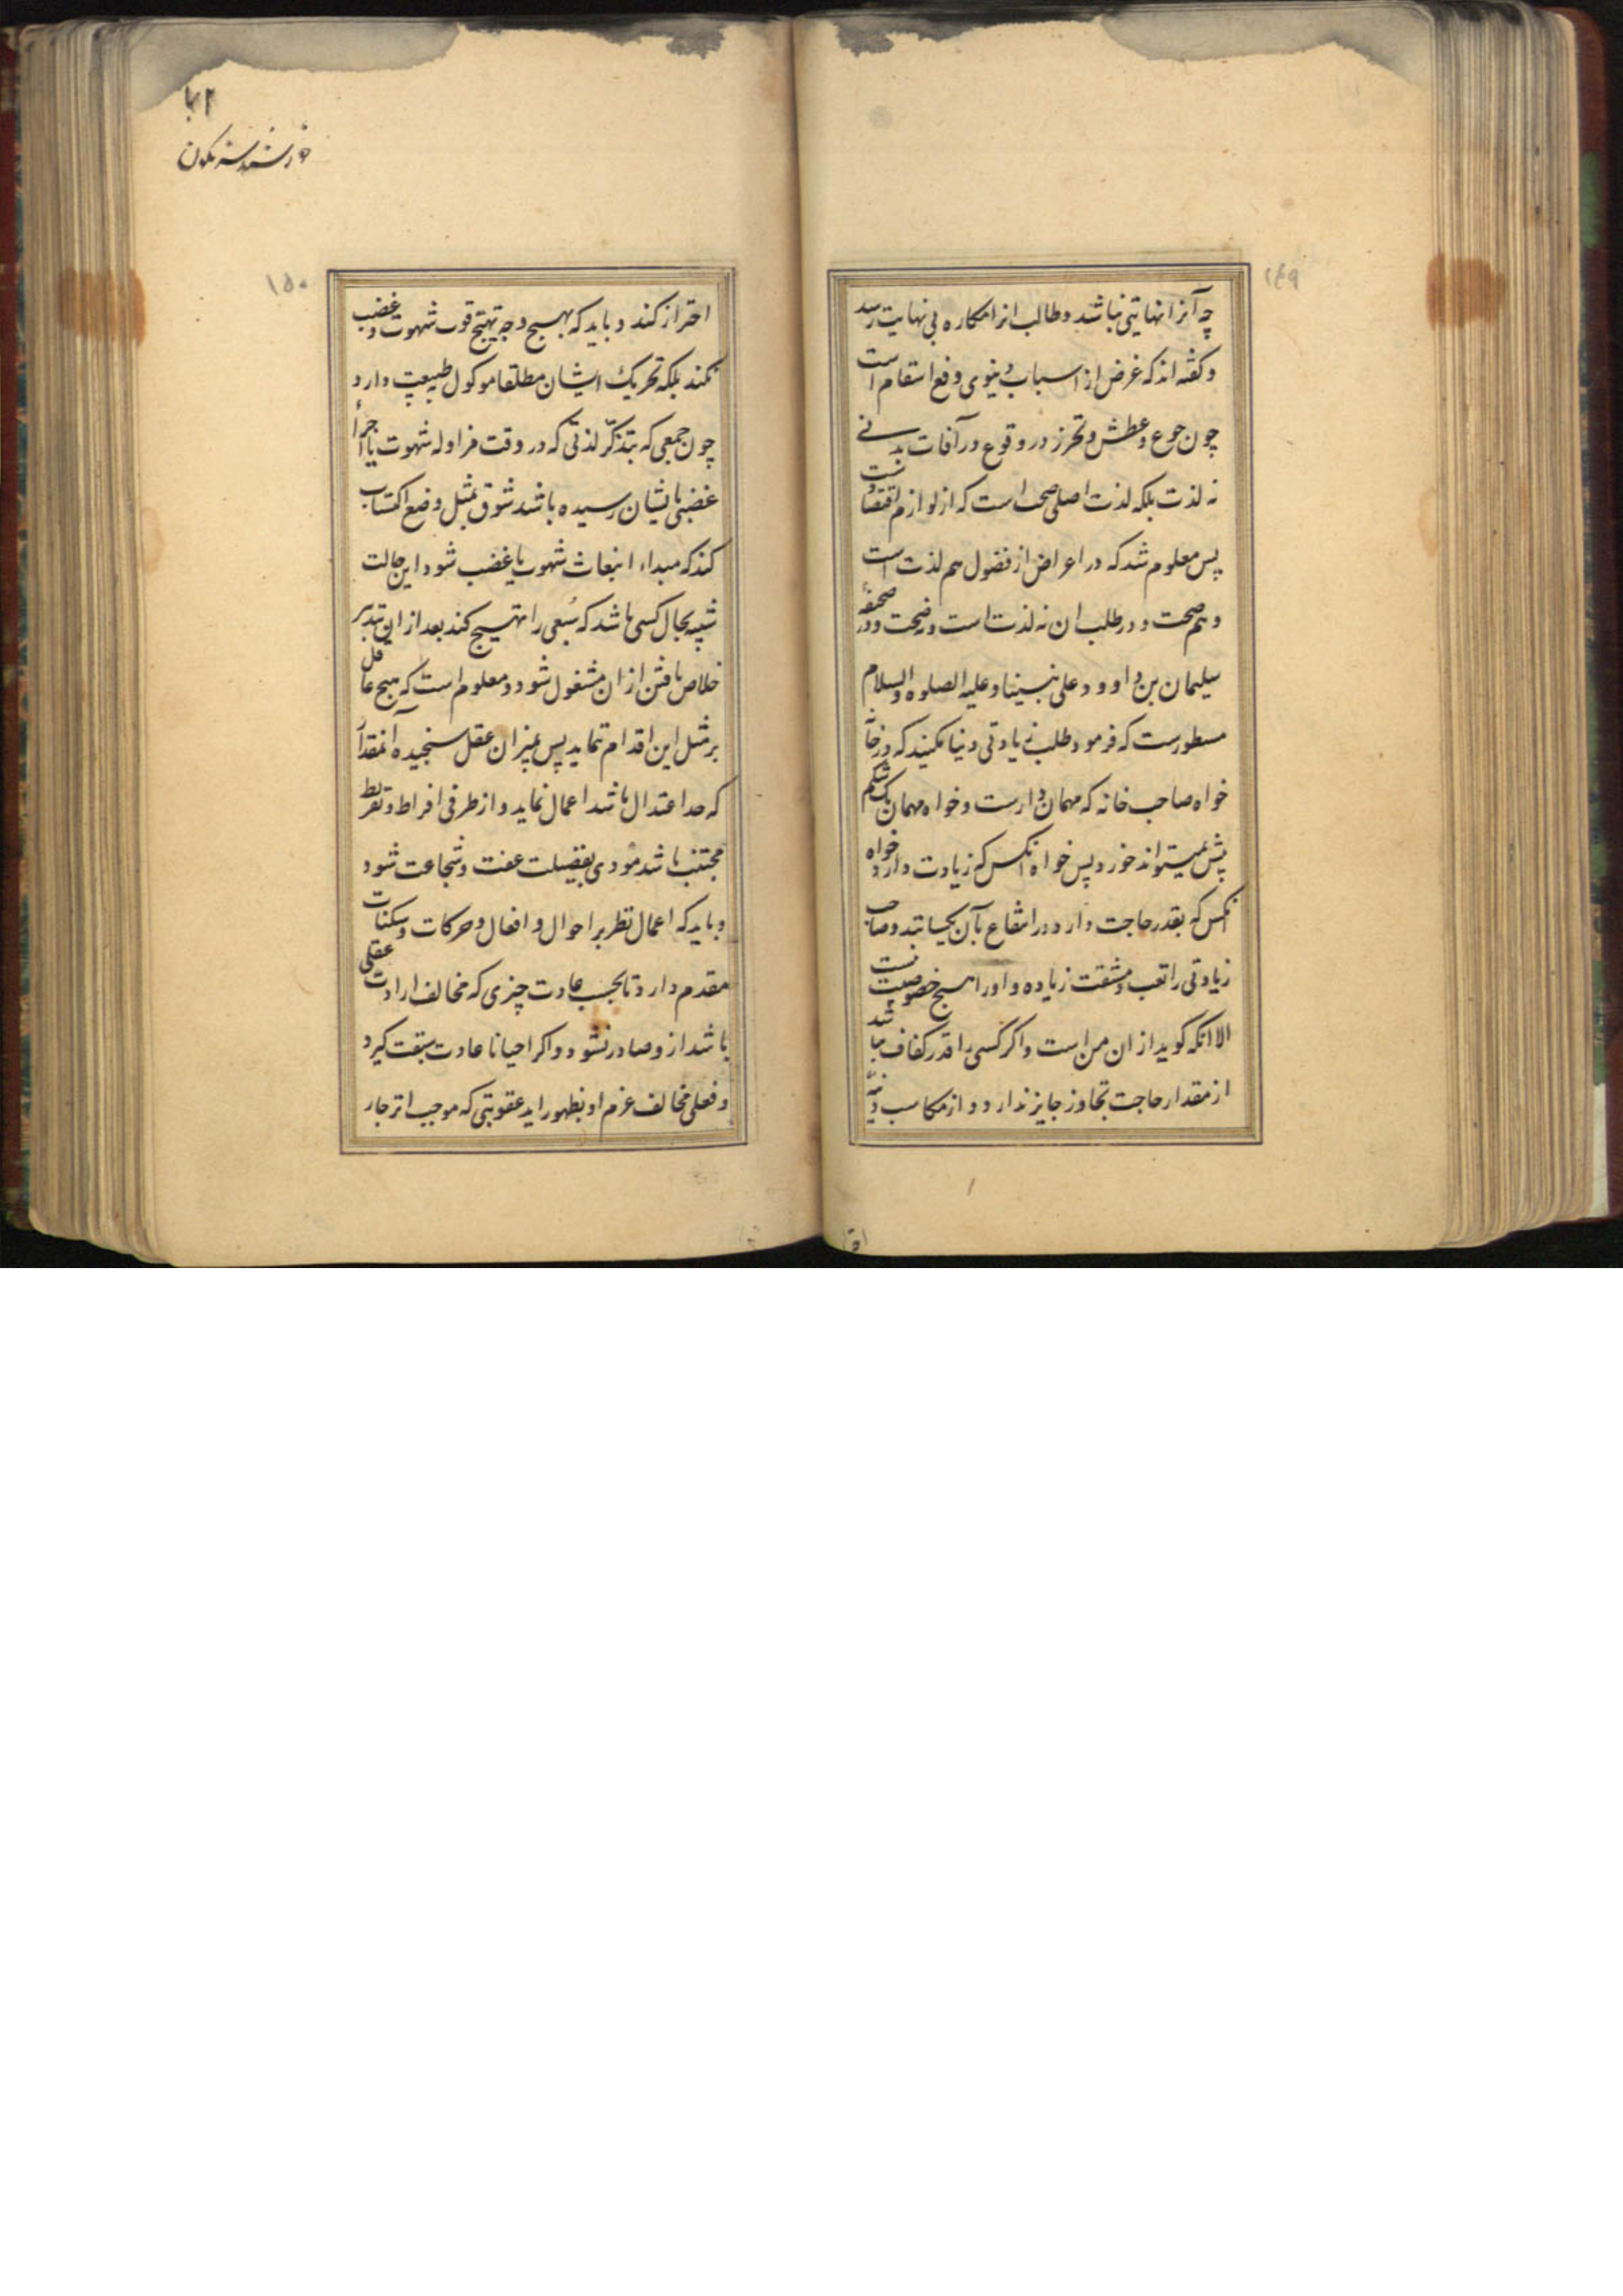 ۱۴۹
چه آنرا نهایتی نباشد و طالب انرا مکاره بی نهایت رسد
و گفته اند که غرض از اسباب دنیوی دفع اسقام است
چون جوع و عطش و تحرز در وقوع در آفات بدنی
نه لذت بلکه لذت اصلی صحت است که از لوازم اقتضا
پس معلوم شد که در اعراض از فضول هم لذت است
و هم صحت و در طلب ان نه لذت است و نه صحت و در صحیفهٔ
سلیمان بن داوود علی نبینا و علیه الصلوه و السلام
مسطورست که فرمود طلب زیادتی دنیا مکنید که در خانه
خواه صاحب خانه که مهمان دارست و خواه مهمان یک شکم
بیش نمیتواند خورد پس خواه انکس که زیادت دارد و خواه
انکس که بقدر حاجت دارد در انتفاع بآن یکسانند و صاحب
زیادتی را تعب و مشقت زیاده و او را هیچ خصوصیت نیست
الا انکه گوید از ان من است و اگر کسی را قدر کفاف نباشد
از مقدار حاجت تجاوز جایز ندارد و از مکاسب دنیه
۲ بها
۱۵۰
احتراز کند و باید که بهیچ وجه تهییج قوت شهوت و غضب
نکند بلکه تحریک ایشان مطلقا موکول طبیعت دارد
چون جمعی که بتذکر لذتی که در وقت مزاوله شهوت یا اجراٴ
غضبی بایشان رسیده باشد شوق بمثل وضع اکتساب
کند که مبداء انبعاث شهوت یا غضب شود این حالت
شبیه بحال کسی باشد که سبعی را تهییج کند بعد از این بتدبیر
خلاص یافتن از ان مشغول شود و معلوم است که هیچ عاقل
بر مثل این اقدام ننماید پس بمیزان عقل سنجیده آنمقدار
که حد اعتدال باشد اعمال نماید و از طرفی افراط و تفریط
مجتنب باشد مؤدی بفضیلت عفت و شجاعت شود
و باید که اعمال نظر بر احوال و افعال و حرکات و سکنات
مقدم دارد تا بحسب عادت چیزی که مخالف ارادت عقلی
باشد ازو صادر نشود و اگر احیانا عادت سبقت گیرد
و فعلی مخالف عزم او بظهور اید عقوبتی که موجب انزجار